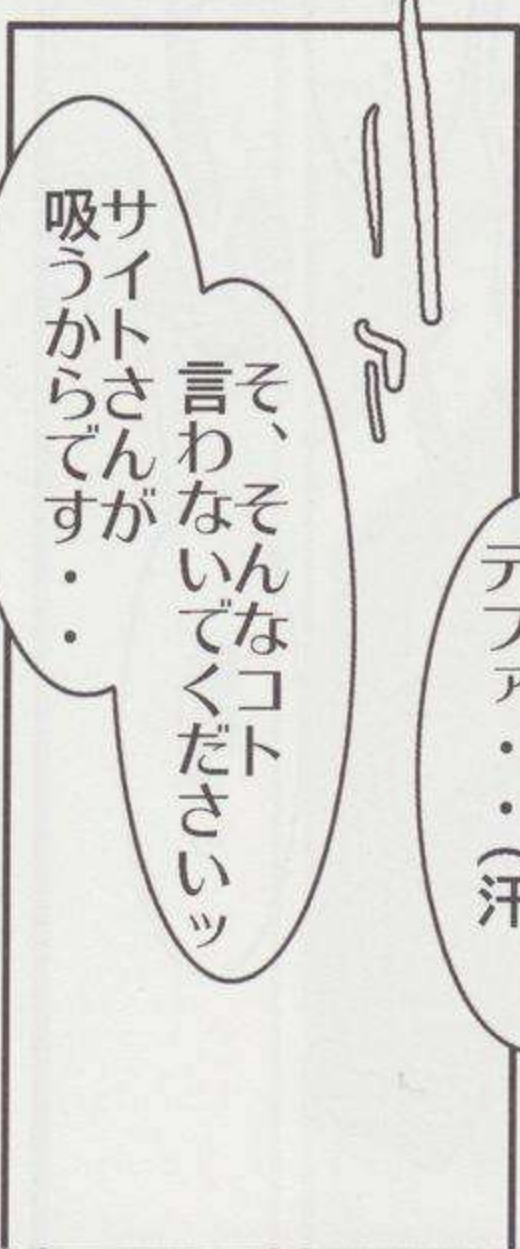 テファ・・(汗
そ、そんなコト
言わないでくださいッ
サイトさんが
吸うからです・・